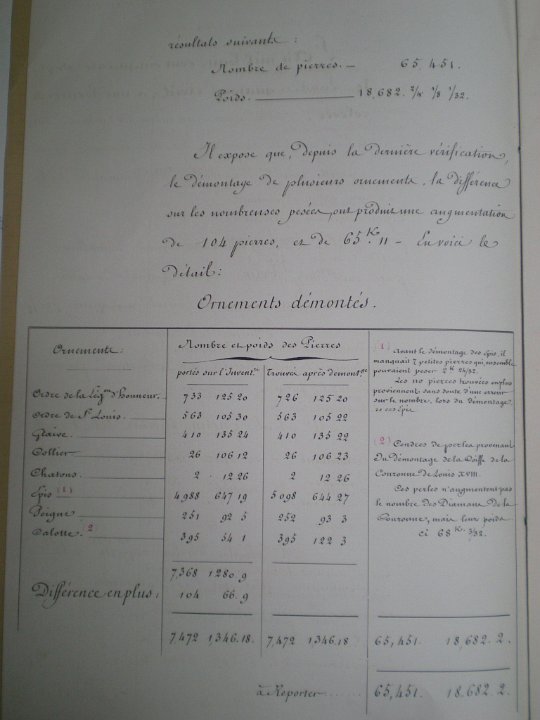 résultats suivants :
Nombre de pierres. — 65,451.
Poids. 18,682. 2/4 1/8 1/32.
Il expose que, depuis la dernière vérification,
le démontage de plusieurs ornements, la différence
sur les nombreuses pesées, ont produit une augmentation
de 104 pierres, et de 65 K. 11 – En voici le
détail :
Ornements démontés.
Ornements : Nombre et poids des Pierres
portés sur l'Invent.re Trouvés après démont.ge
Ordre de la Lég.on d'honneur. 733 125 20 726 125 20
Ordre de St Louis. 563 105 30 563 105 22
Glaive. 410 135 24 410 135 22
Collier. 26 106 12 26 106 23
Chatons. 2 12 26 2 12 26
Epis (1) 4,988 647 19 5,098 644 27
Poigne 251 92 5 252 93 3
Calotte. (2) 395 54 1 395 122 3
7,368 1280 9
Différence en plus : 104 66. 9
7,472 1,346. 18. 7,472 1,346 18 65,451. 18,682. 2.
à Reporter 65,451. 18.682. 2.
(1) Avant le démontage des Epis, il
manquait 7 petites pierres qui, ensemble,
pouvaient peser 2 K 24/32.
Les 110 pierres trouvées en plus
proviennent sans doute d'une erreur
sur le nombre, lors du démontage
de ces Epis.
(2) Cordres de perles provenant
du démontage de la Coiffe de la
Couronne de Louis XVIII.
Ces perles n'augmentent pas
le nombre des Diamans de la
Couronne, mais leur poids
ci 68 K. 3/32.